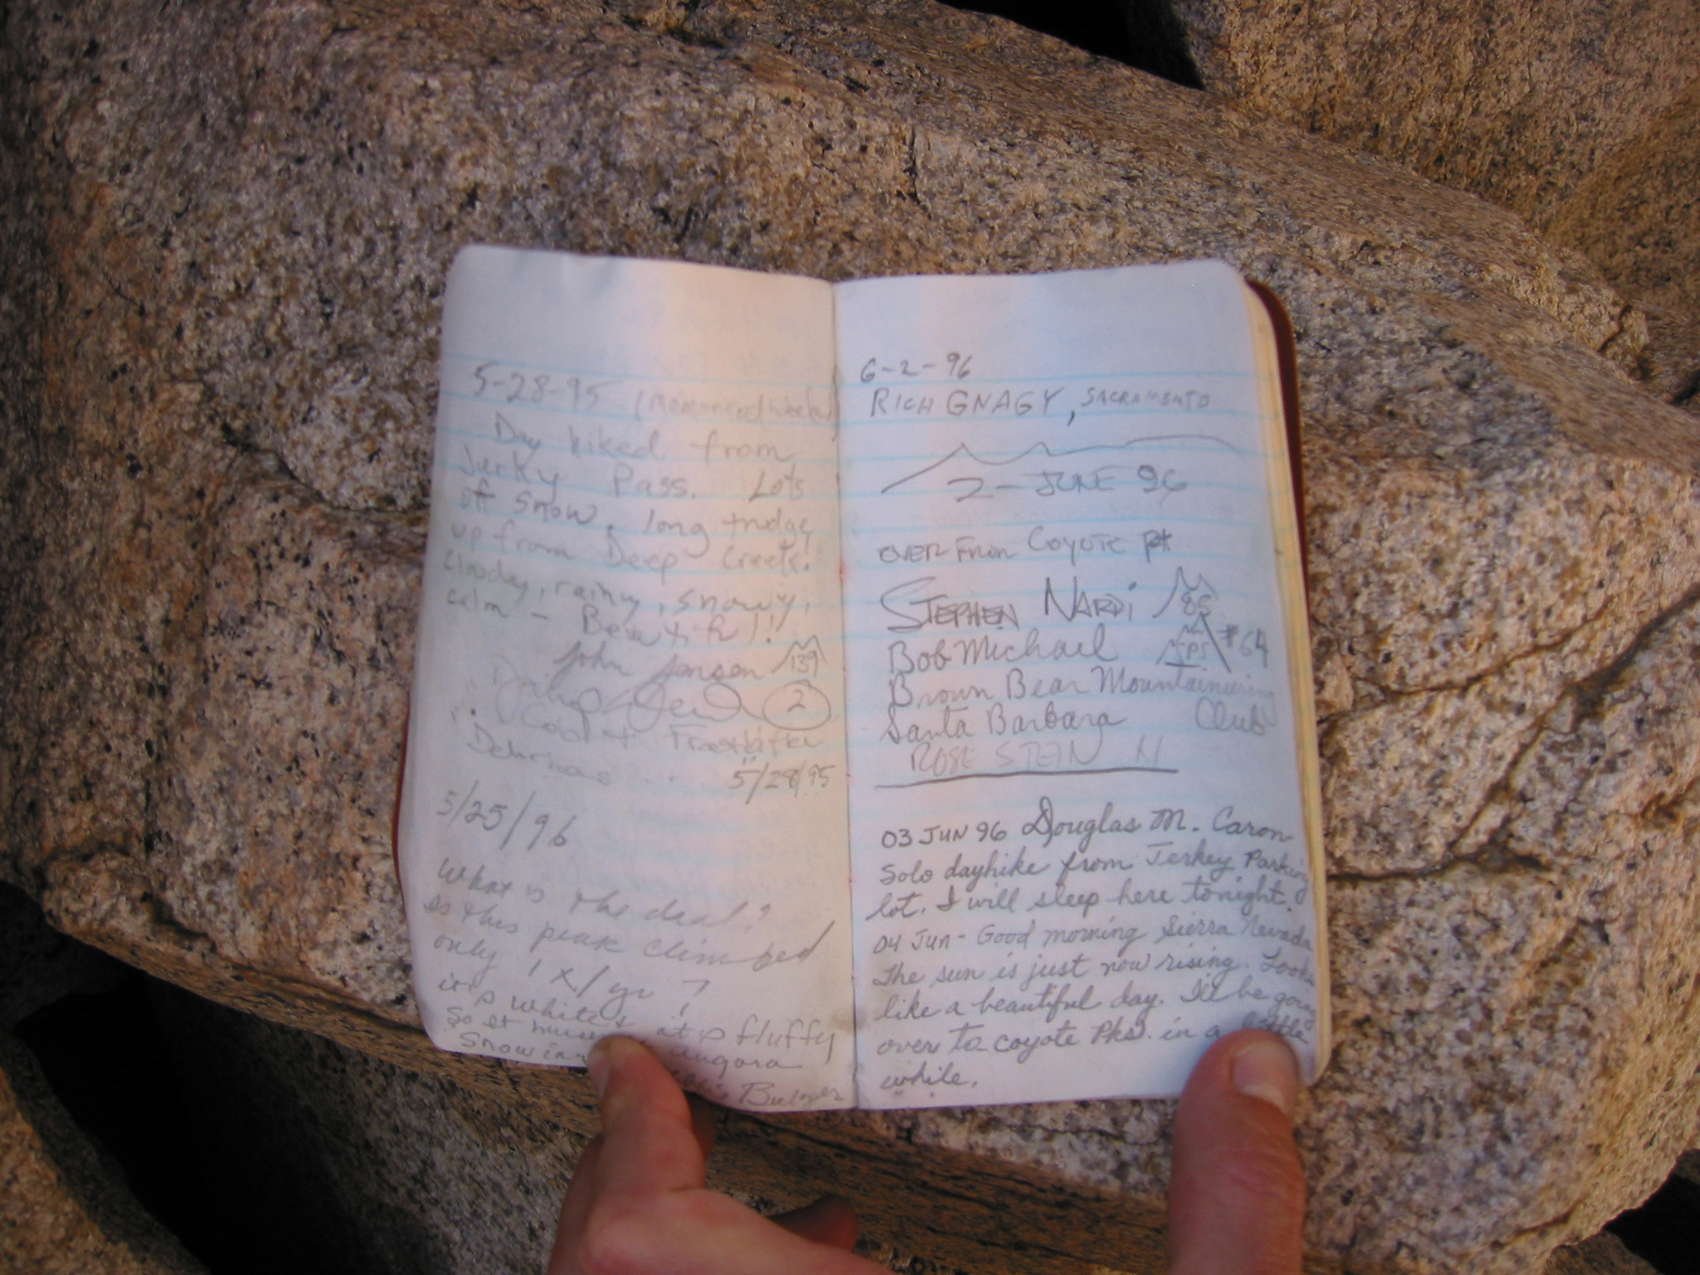 5-28-95 (Memorial
Day hiked from
Jerky Pass. Lots
of snow, long trudge
up from Deep Creek.
Cloudy, rainy, snowy,
calm -
John Jensen 139
2
Cold +
5/28/95
5/25/96
What is the deal?
Is this peak climbed
only 1x/yr?
it's white & it's fluffy
So it must angora
Snow in
6-2-96
RICH GNAGY, SACRAMENTO
2-JUNE 96
OVER FROM COYOTE Pt
STEPHEN NARDI 85
Bob Michael TPS #64
Brown Bear Mountaineering
Santa Barbara Club
ROSE STEIN
03 JUN 96 Douglas M. Caron
Solo dayhike from Jerkey Parking
lot. I will sleep here tonight.
04 Jun - Good morning Sierra Nevada
The sun is just now rising. Looks
like a beautiful day. I'll be going
over to Coyote Pks. in a little
while.